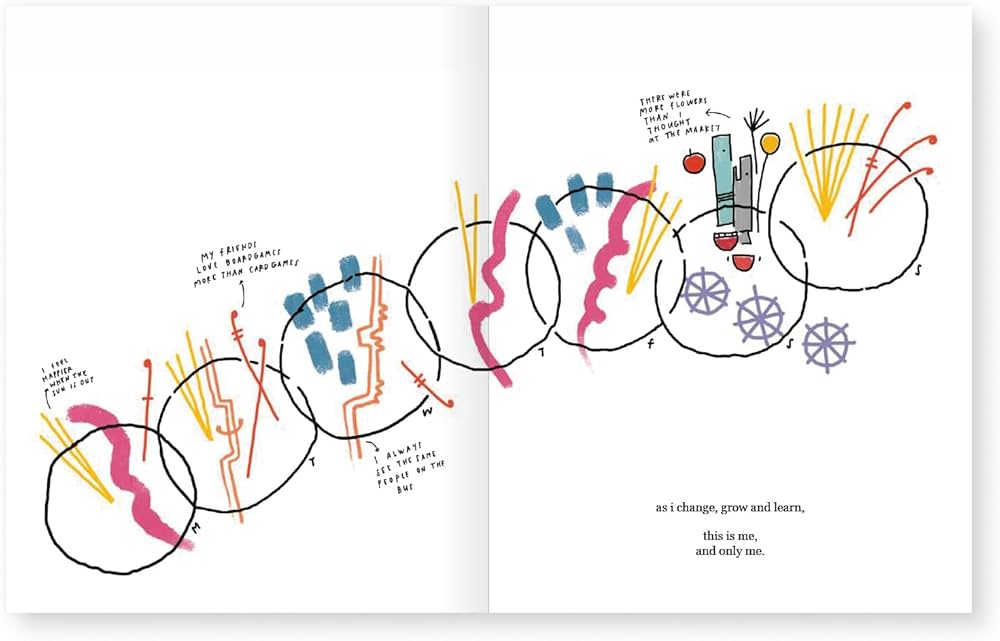 I FEEL
HAPPIER
WHEN THE
SUN IS OUT
M
MY FRIENDS
LOVE BOARDGAMES
MORE THAN CARDGAMES
T
W
I ALWAYS
SEE THE SAME
PEOPLE ON THE
BUS
T
F
THERE WERE
MORE FLOWERS
THAN I
THOUGHT
AT THE MARKET
S
S
as i change, grow and learn,
this is me,
and only me.